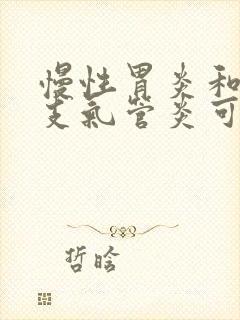 慢性胃炎和
支氣管炎可
哲晗